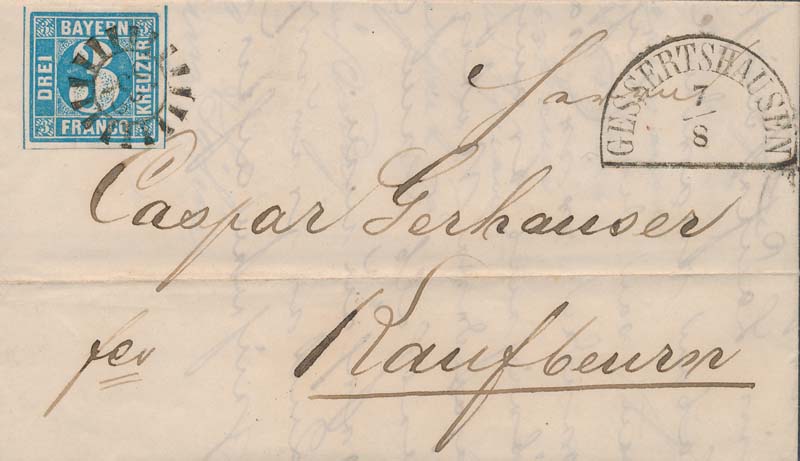 BAYERN
DREI
3
KREUZER
FRANCO
GESSERTSHAUSEN
7/8
Herrn
Caspar Gerhauser
Kaufbeurn